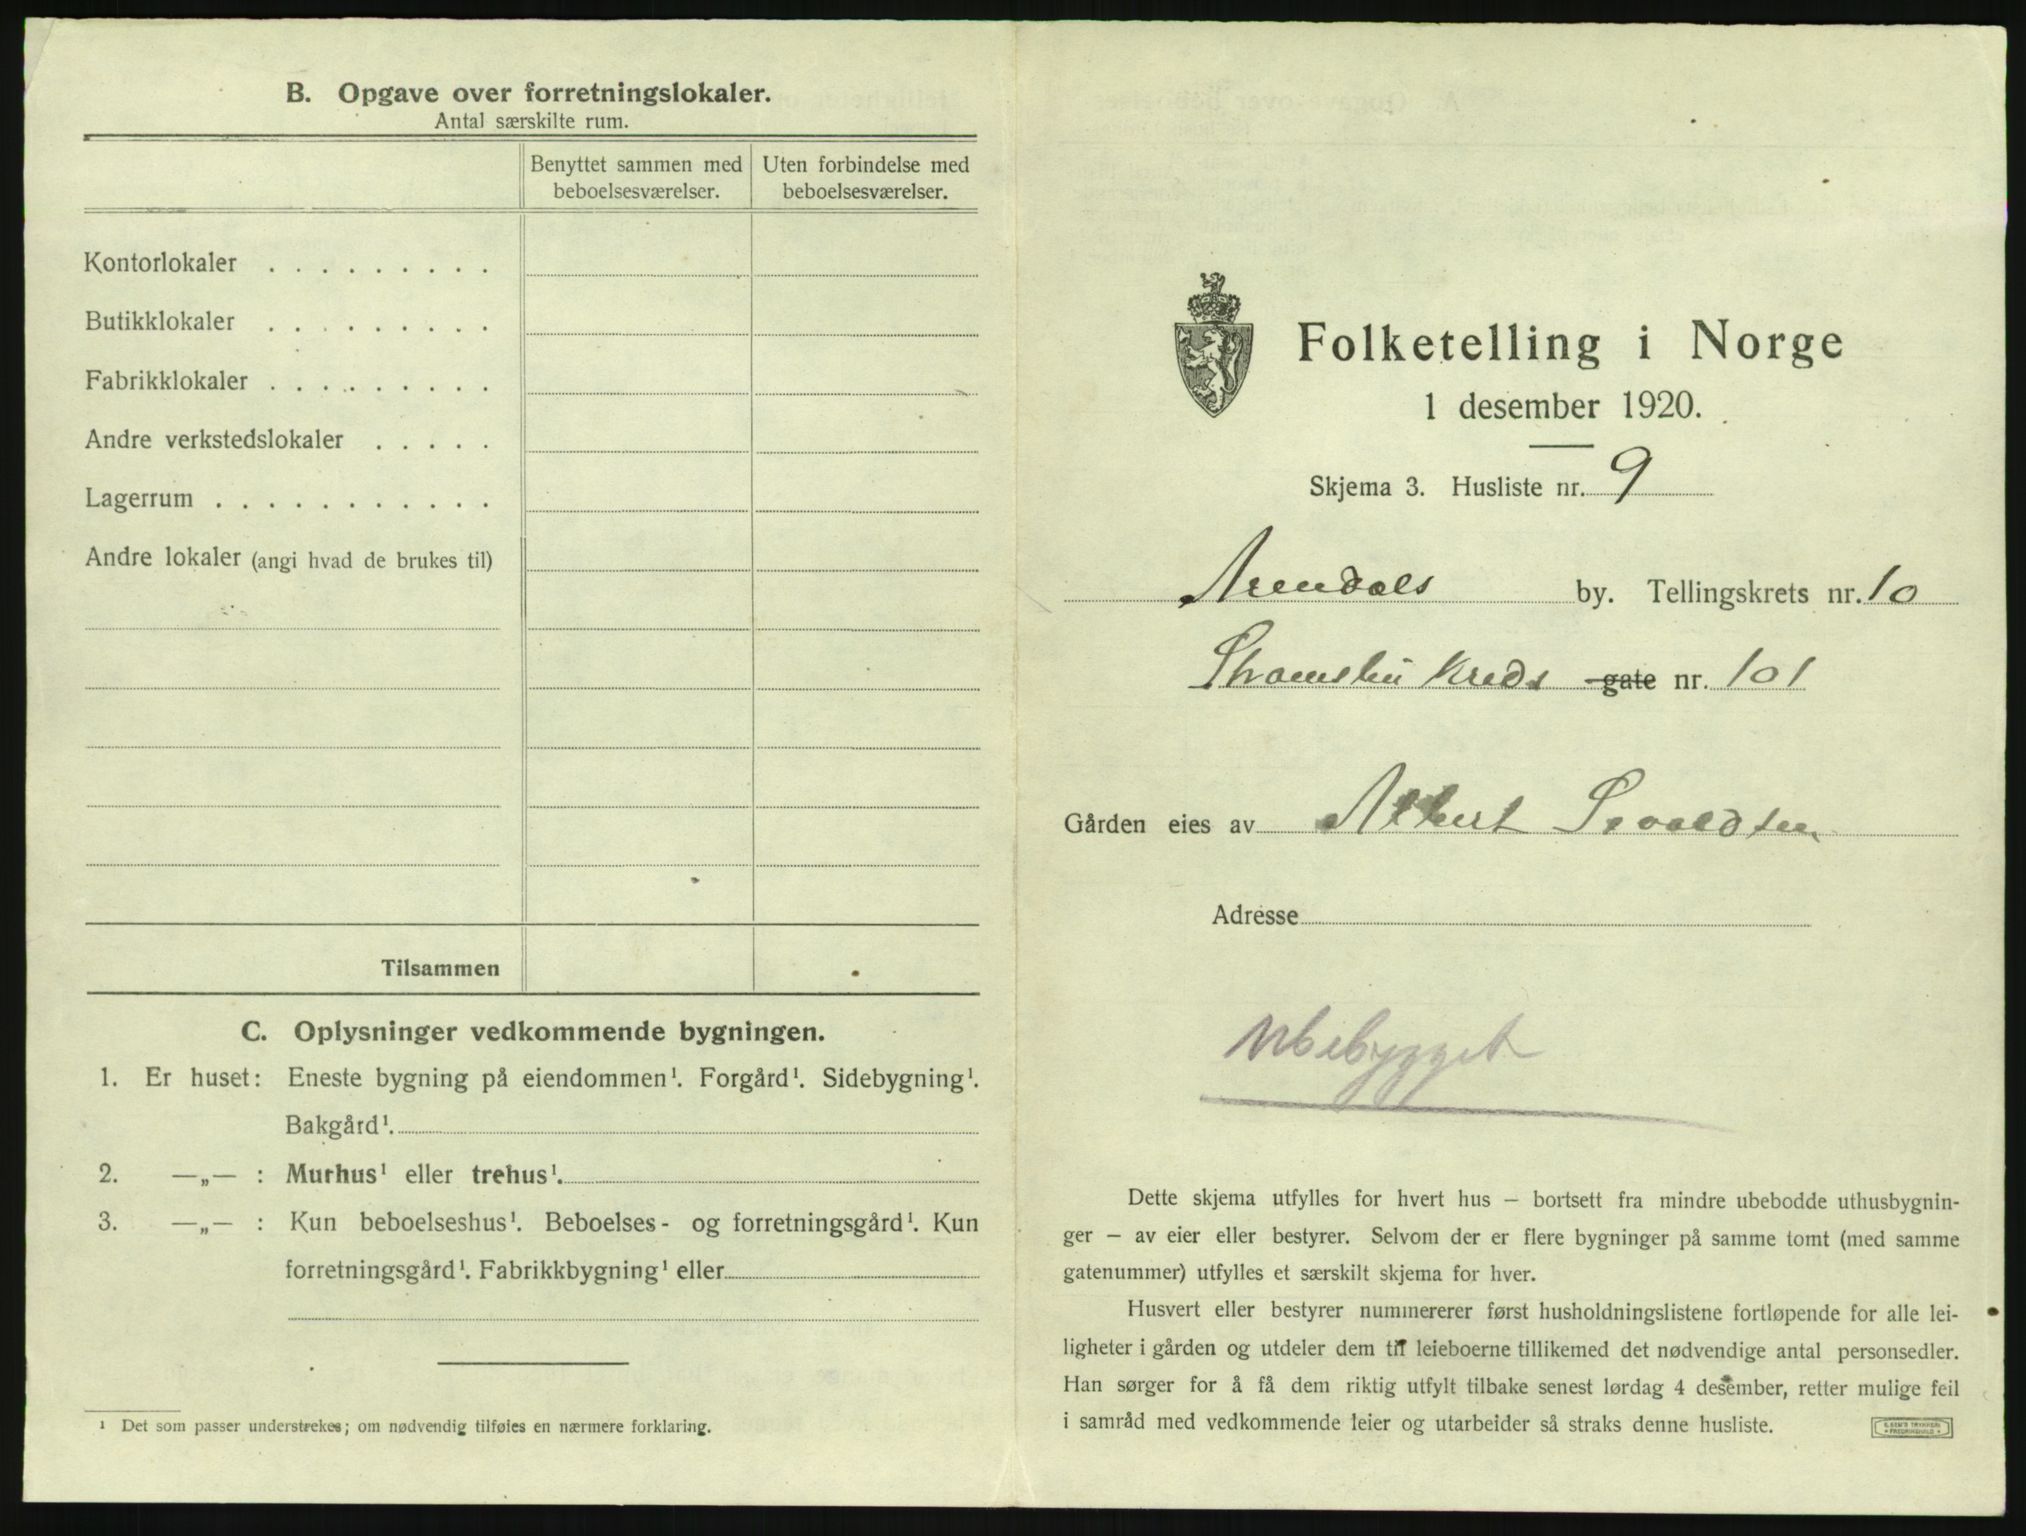 B. Opgave over forretningslokaler.
Antal særskilte rum.
Benyttet sammen med beboelsesværelser.
Uten forbindelse med beboelsesværelser.
Kontorlokaler . . . . . . . . .
Butikklokaler . . . . . . . . .
Fabrikklokaler . . . . . . . . .
Andre verkstedslokaler . . . . .
Lagerrum . . . . . . . . . . .
Andre lokaler (angi hvad de brukes til)
Tilsammen
C. Oplysninger vedkommende bygningen.
1. Er huset: Eneste bygning på eiendommen¹. Forgård¹. Sidebygning¹.
Bakgård¹.
2. —„— : Murhus¹ eller trehus¹.
3. —„— : Kun beboelseshus¹. Beboelses- og forretningsgård¹. Kun
forretningsgård¹. Fabrikkbygning¹ eller
¹ Det som passer understrekes; om nødvendig tilføies en nærmere forklaring.
Folketelling i Norge
1 desember 1920.
Skjema 3. Husliste nr. 9
Arendals by. Tellingskrets nr. 10
Strømsbu Kreds gate nr. 101
Gården eies av Albert
Adresse
Ubebygget
Dette skjema utfylles for hvert hus – bortsett fra mindre ubebodde uthusbygnin-
ger – av eier eller bestyrer. Selvom der er flere bygninger på samme tomt (med samme
gatenummer) utfylles et særskilt skjema for hver.
Husvert eller bestyrer nummererer først husholdningslistene fortløpende for alle lei-
ligheter i gården og utdeler dem til leieboerne tillikemed det nødvendige antal personsedler.
Han sørger for å få dem riktig utfylt tilbake senest lørdag 4 desember, retter mulige feil
i samråd med vedkommende leier og utarbeider så straks denne husliste.